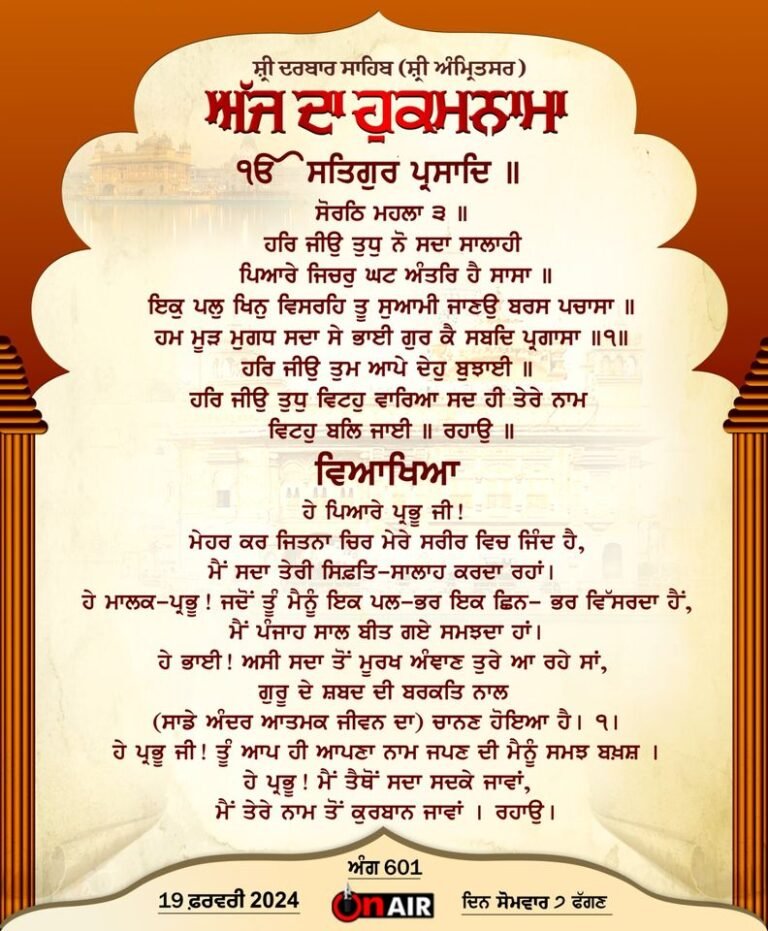 ਸ਼੍ਰੀ ਦਰਬਾਰ ਸਾਹਿਬ (ਸ਼੍ਰੀ ਅੰਮ੍ਰਿਤਸਰ)
ਅੱਜ ਦਾ ਹੁਕਮਨਾਮਾ
ੴ ਸਤਿਗੁਰ ਪ੍ਰਸਾਦਿ ॥
ਸੋਰਠਿ ਮਹਲਾ ੩ ॥
ਹਰਿ ਜੀਉ ਤੁਧੁ ਨੋ ਸਦਾ ਸਾਲਾਹੀ
ਪਿਆਰੇ ਜਿਚਰੁ ਘਟ ਅੰਤਰਿ ਹੈ ਸਾਸਾ ॥
ਇਕੁ ਪਲੁ ਖਿਨੁ ਵਿਸਰਹਿ ਤੂ ਸੁਆਮੀ ਜਾਣਉ ਬਰਸ ਪਚਾਸਾ ॥
ਹਮ ਮੂੜ ਮੁਗਧ ਸਦਾ ਸੇ ਭਾਈ ਗੁਰ ਕੈ ਸਬਦਿ ਪ੍ਰਗਾਸਾ ॥੧॥
ਹਰਿ ਜੀਉ ਤੁਮ ਆਪੇ ਦੇਹੁ ਬੁਝਾਈ ॥
ਹਰਿ ਜੀਉ ਤੁਧੁ ਵਿਟਹੁ ਵਾਰਿਆ ਸਦ ਹੀ ਤੇਰੇ ਨਾਮ
ਵਿਟਹੁ ਬਲਿ ਜਾਈ ॥ ਰਹਾਉ ॥
ਵਿਆਖਿਆ
ਹੇ ਪਿਆਰੇ ਪ੍ਰਭੂ ਜੀ!
ਮੇਹਰ ਕਰ ਜਿਤਨਾ ਚਿਰ ਮੇਰੇ ਸਰੀਰ ਵਿਚ ਜਿੰਦ ਹੈ,
ਮੈਂ ਸਦਾ ਤੇਰੀ ਸਿਫ਼ਤਿ-ਸਾਲਾਹ ਕਰਦਾ ਰਹਾਂ।
ਹੇ ਮਾਲਕ-ਪ੍ਰਭੂ! ਜਦੋਂ ਤੂੰ ਮੈਨੂੰ ਇਕ ਪਲ-ਭਰ ਇਕ ਛਿਨ- ਭਰ ਵਿੱਸਰਦਾ ਹੈਂ,
ਮੈਂ ਪੰਜਾਹ ਸਾਲ ਬੀਤ ਗਏ ਸਮਝਦਾ ਹਾਂ।
ਹੇ ਭਾਈ! ਅਸੀ ਸਦਾ ਤੋਂ ਮੂਰਖ ਅੰਞਾਣ ਤੁਰੇ ਆ ਰਹੇ ਸਾਂ,
ਗੁਰੂ ਦੇ ਸ਼ਬਦ ਦੀ ਬਰਕਤਿ ਨਾਲ
(ਸਾਡੇ ਅੰਦਰ ਆਤਮਕ ਜੀਵਨ ਦਾ) ਚਾਨਣ ਹੋਇਆ ਹੈ। ੧।
ਹੇ ਪ੍ਰਭੂ ਜੀ! ਤੂੰ ਆਪ ਹੀ ਆਪਣਾ ਨਾਮ ਜਪਣ ਦੀ ਮੈਨੂੰ ਸਮਝ ਬਖ਼ਸ਼ ।
ਹੇ ਪ੍ਰਭੂ! ਮੈਂ ਤੈਥੋਂ ਸਦਾ ਸਦਕੇ ਜਾਵਾਂ,
ਮੈਂ ਤੇਰੇ ਨਾਮ ਤੋਂ ਕੁਰਬਾਨ ਜਾਵਾਂ । ਰਹਾਉ।
ਅੰਗ 601
19 ਫ਼ਰਵਰੀ 2024
On AIR
ਦਿਨ ਸੋਮਵਾਰ ੭ ਫੱਗਣ